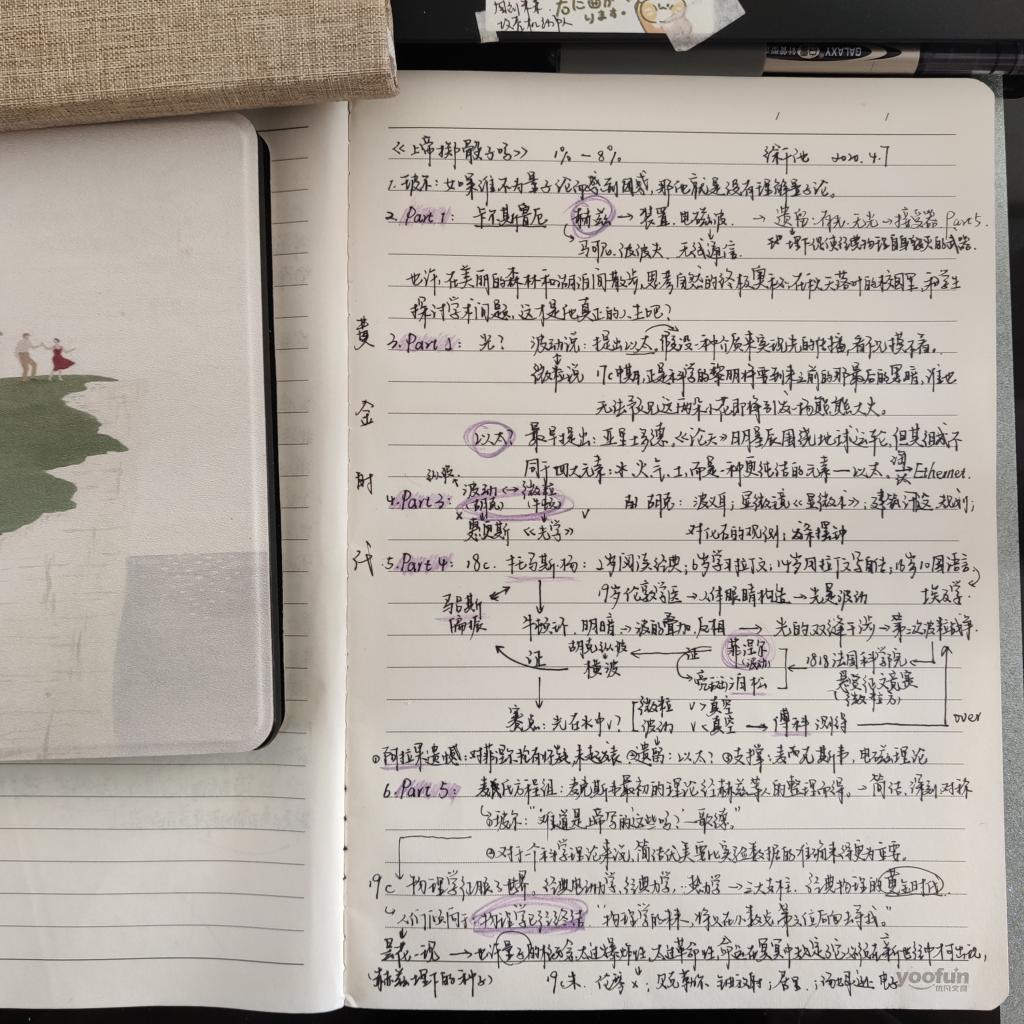 右に曲が
ります。
GALAXY
《上帝掷骰子吗》 1% — 8% 2020.4.7
1. 玻尔：如果谁不为量子论而感到困惑，那他就是没有理解量子论。
2. Part 1： 卡尔斯鲁厄 赫兹 → 装置，电磁波. → 遗留：有光·无光→接受器 Part 5.
马可尼，波波夫 无线通信. 埋下促使经典物理自身毁灭的武器.
也许，在美丽的森林和湖泊间散步，思考自然的终极奥秘，在秋天落叶的校园里，和学生
探讨学术问题，这才是他真正的人生吧？
黄
3. Part 2： 光？ 波动说：提出以太，假设一种介质来实现光的传播，看不见摸不着。
微粒说 17c中期，正是科学的黎明将要到来之前的那最后的黑暗，谁也
无法预见这两朵小花即将引发一场熊熊大火。
金
以太？ 最早提出：亚里士多德，《论天》日月星辰围绕地球运转，但其组成不
同于四大元素：水、火、气、土，而是一种更纯洁的元素—以太. Ethernet.
时
4. Part 3： 波动 ↔ 微粒
(胡克) (牛顿)
惠更斯 《光学》
胡克：波义耳；显微镜《显微术》；建筑
对化石的观测；发条摆钟
代
5. Part 4： 18c. 托马斯·杨： 2岁阅读经典；6岁学习拉丁文，14岁用拉丁文写自传，16岁10国语言
19岁伦敦学医→人体眼睛构造→光是波动 埃及学.
马吕斯
偏振
牛顿环，明暗→波的叠加，反相 → 光的双缝干涉→第二次波粒战争.
证 胡克纵波
横波
证 菲涅尔
(波动)
泊松
1818法国科学院
悬赏征文竞赛
(微粒方)
赛点：光在水中v？ 微粒 v>真空
波动 v<真空 → 傅科 测得 over
①阿拉果遗憾：对菲涅尔 ②遗留：以太？ ③支撑：麦克斯韦，电磁理论
6. Part 5： 麦氏方程组：麦克斯韦最初的理论经赫兹等人的整理而得。→ 简洁，深刻，对称
“难道是上帝写的这些吗？—歌德。”
对于一个科学理论来说，简洁优美要比实验数据的准确来得更为重要。
19c 物理学征服了世界。经典电动力学，经典力学，热力学 → 三大支柱. 经典物理的黄金时代.
人们倾向于：物理学已经终结 “物理学的未来，将只在小数点第六位后面去寻找。”
昙花一现 → 也许量子的概念太过爆炸性，太过革命性，命运在冥冥中规定了它必须在新世纪中才可出现，
(赫兹埋下的种子) 19c末. 伦琴 x；贝克勒尔 铀放射；居里；汤姆逊 电子
yoofun
优凡文具